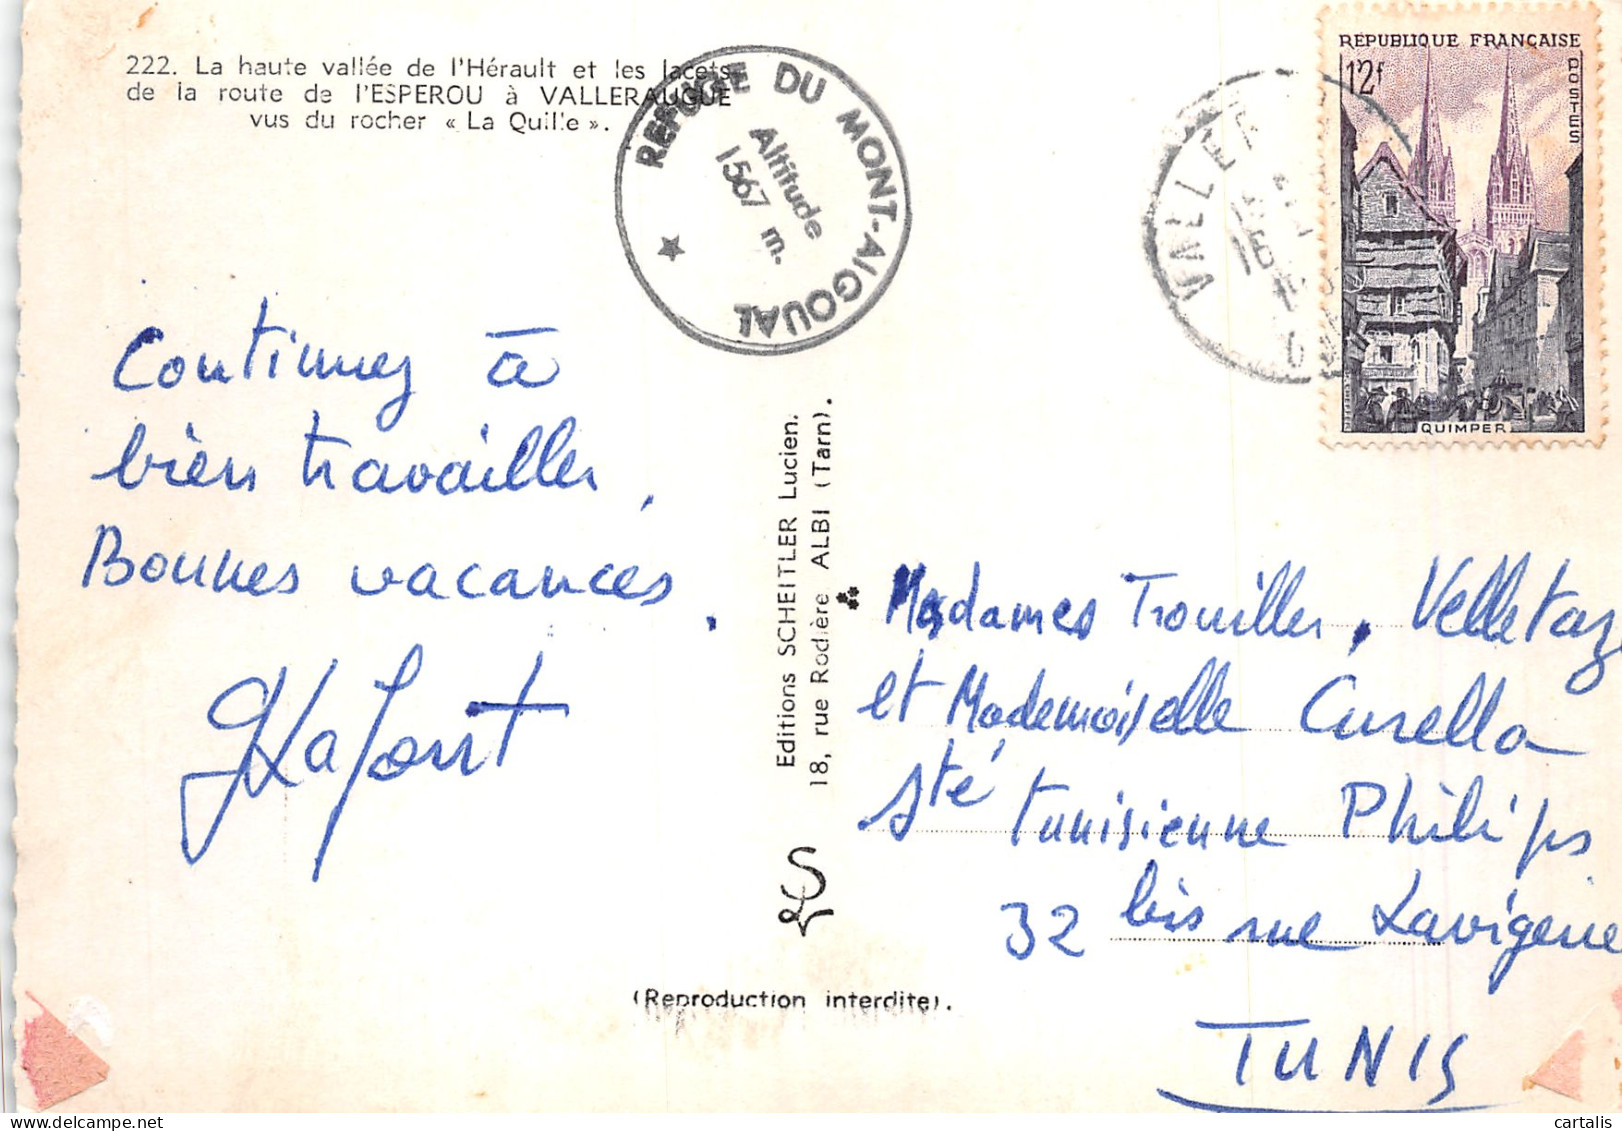 222. La haute vallée de l'Hérault et les lacets
de la route de l'ESPEROU à VALLERAUGUE
vus du rocher « La Quille ».
REFUGE DU MONT-AIGOUAL
Altitude
1567 m.
RÉPUBLIQUE FRANÇAISE
12f
POSTES
QUIMPER
VALLER
Continuez à
bien travailler.
Bonnes vacances.
Lafont
Editions SCHEITLER Lucien.
18, rue Rodière ALBI (Tarn).
(Reproduction interdite).
Mesdames Trouiller, Velletaz
et Mademoiselle Cusella
Sté Tunisienne Philips
32 bis rue Lavigerie
TUNIS
cartalis